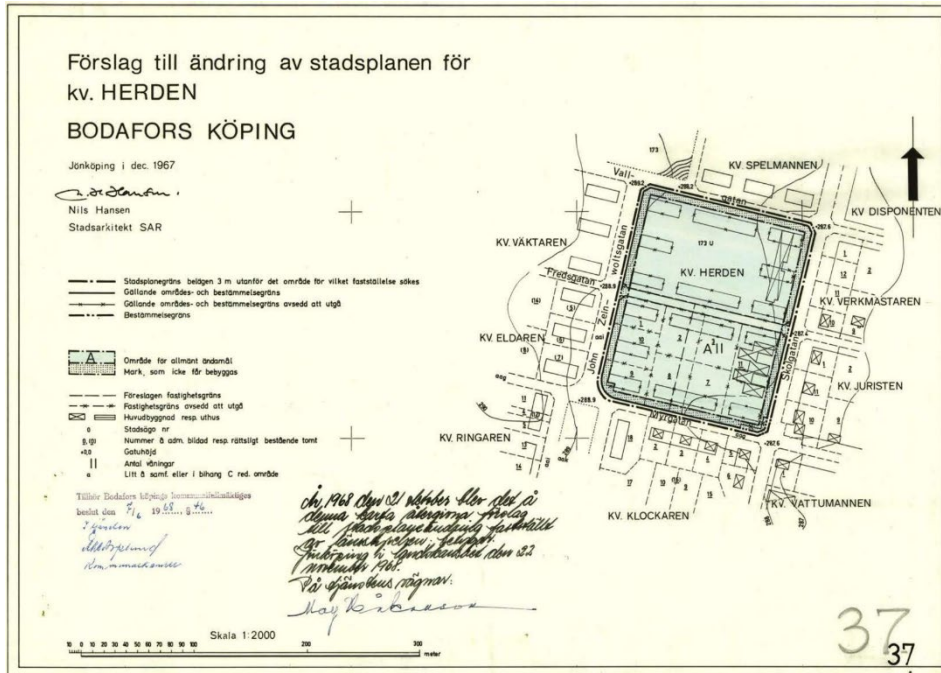 Förslag till ändring av stadsplanen för
kv. HERDEN
BODAFORS KÖPING
Jönköping i dec. 1967
Nils Hansen
Stadsarkitekt SAR
Stadsplanegräns belägen 3 m utanför det område för vilket fastställelse sökes
Gällande områdes- och bestämmelsegräns
Gällande områdes- och bestämmelsegräns avsedd att utgå
Bestämmelsegräns
A
Område för allmänt ändamål
Mark, som icke får bebyggas
Föreslagen fastighetsgräns
Fastighetsgräns avsedd att utgå
Huvudbyggnad resp. uthus
Stadsäga nr
Nummer å adm. bildad resp. rättsligt bestående tomt
Gatuhöjd
II Antal våningar
a Litt å samf. eller i bihang C red. område
Tillhör Bodafors köpings kommunalfullmäktiges
beslut den 7/6 1968 § 76
år 1968 den 21 oktober blev det å
denna karta återgivna förslag
till stadsplaneändring fastställt
av länsstyrelsen; betygar.
Jönköping i landskansliet den 22
november 1968.
På tjänstens vägnar:
Skala 1:2000
10 0 10 20 30 40 50 60 70 80 90 100 200 300
meter
173
KV. SPELMANNEN
Vall-
gatan
+290.2
+290.3
+287.6
KV DISPONENTEN
KV. VÄKTAREN
173 U
KV. HERDEN
Fredsgatan
John Zeln- woltsgatan
+288.9
KV. VERKMÄSTAREN
KV. ELDAREN
A II
Skolgatan
+287.4
KV. JURISTEN
+288.9
KV. RINGAREN
Myrgatan
+287.6
KV. KLOCKAREN
KV. VATTUMANNEN
37
37